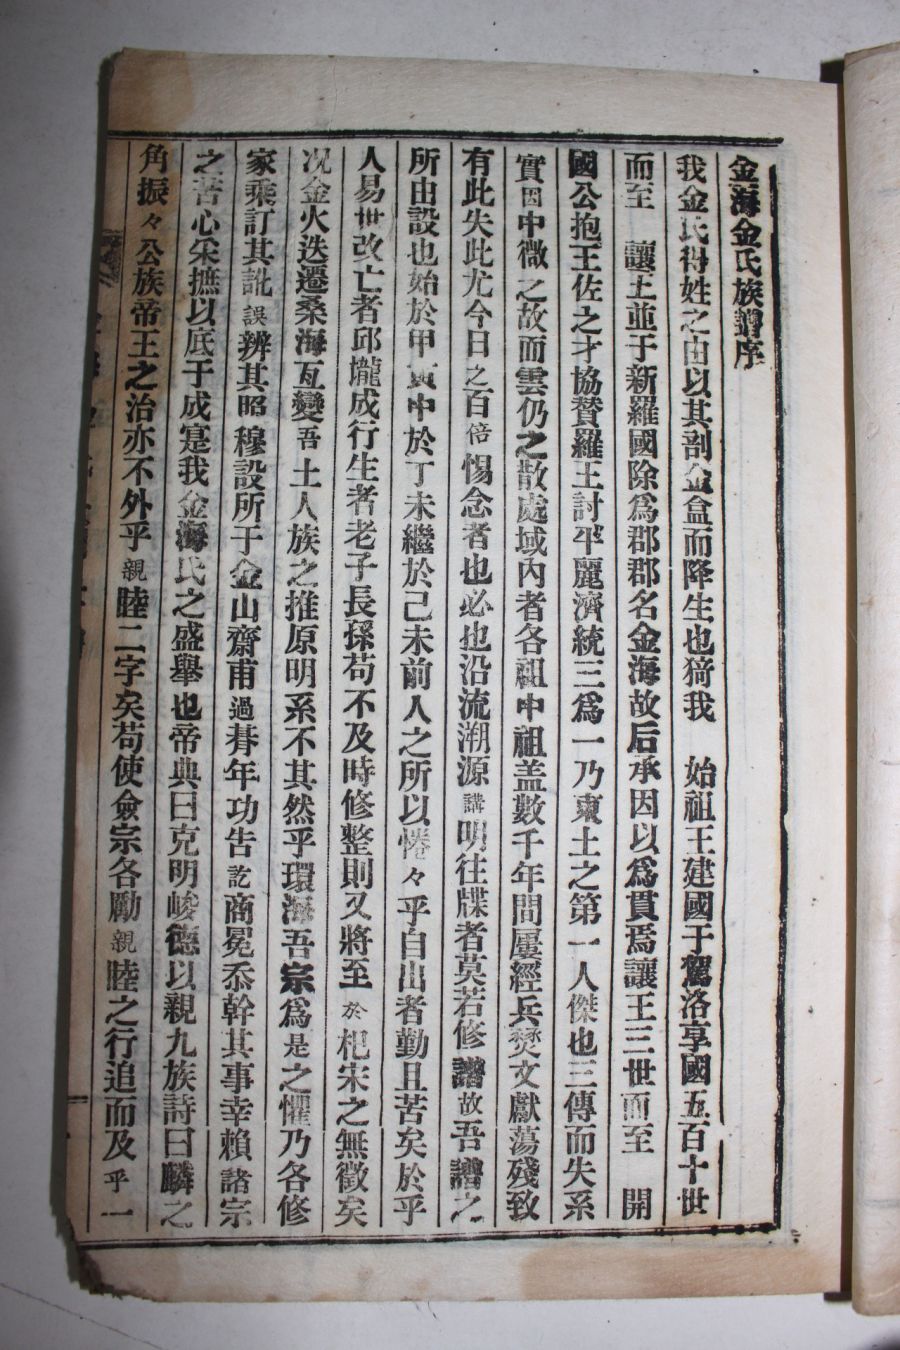 金海金氏族譜序
我金氏得姓之由以其剖金盒而降生也猗我　始祖王建國于駕洛享國五百十世
而至　讓王並于新羅國除爲郡郡名金海故后承因以爲貫焉讓王三世而至　開
國公抱王佐之才協贊羅王討平麗濟統三爲一乃東土之第一人傑也三傳而失系
實因中微之故而雲仍之散處域內者各祖中祖盖數千年間屢經兵燹文獻蕩殘致
有此失此尤今日之百倍惕念者也必也沿流溯源講明往牒者莫若修譜故吾譜之
所由設也始於甲寅中於丁未繼於己未前人之所以惓々乎自出者勤且苦矣於乎
人易世改亡者邱壠成行生者老子長孫苟不及時修整則又將至於杞宋之無徵矣
况金火迭遷桑海互變吾土人族之推原明系不其然乎環海吾宗爲是之懼乃各修
家乘訂其訛誤辨其昭穆設所于金山齋甫過朞年功告訖商冕忝幹其事幸賴諸宗
之苦心采摭以底于成寔我金海氏之盛擧也帝典曰克明峻德以親九族詩曰麟之
角振々公族帝王之治亦不外乎親睦二字矣苟使僉宗各勵親睦之行追而及乎一